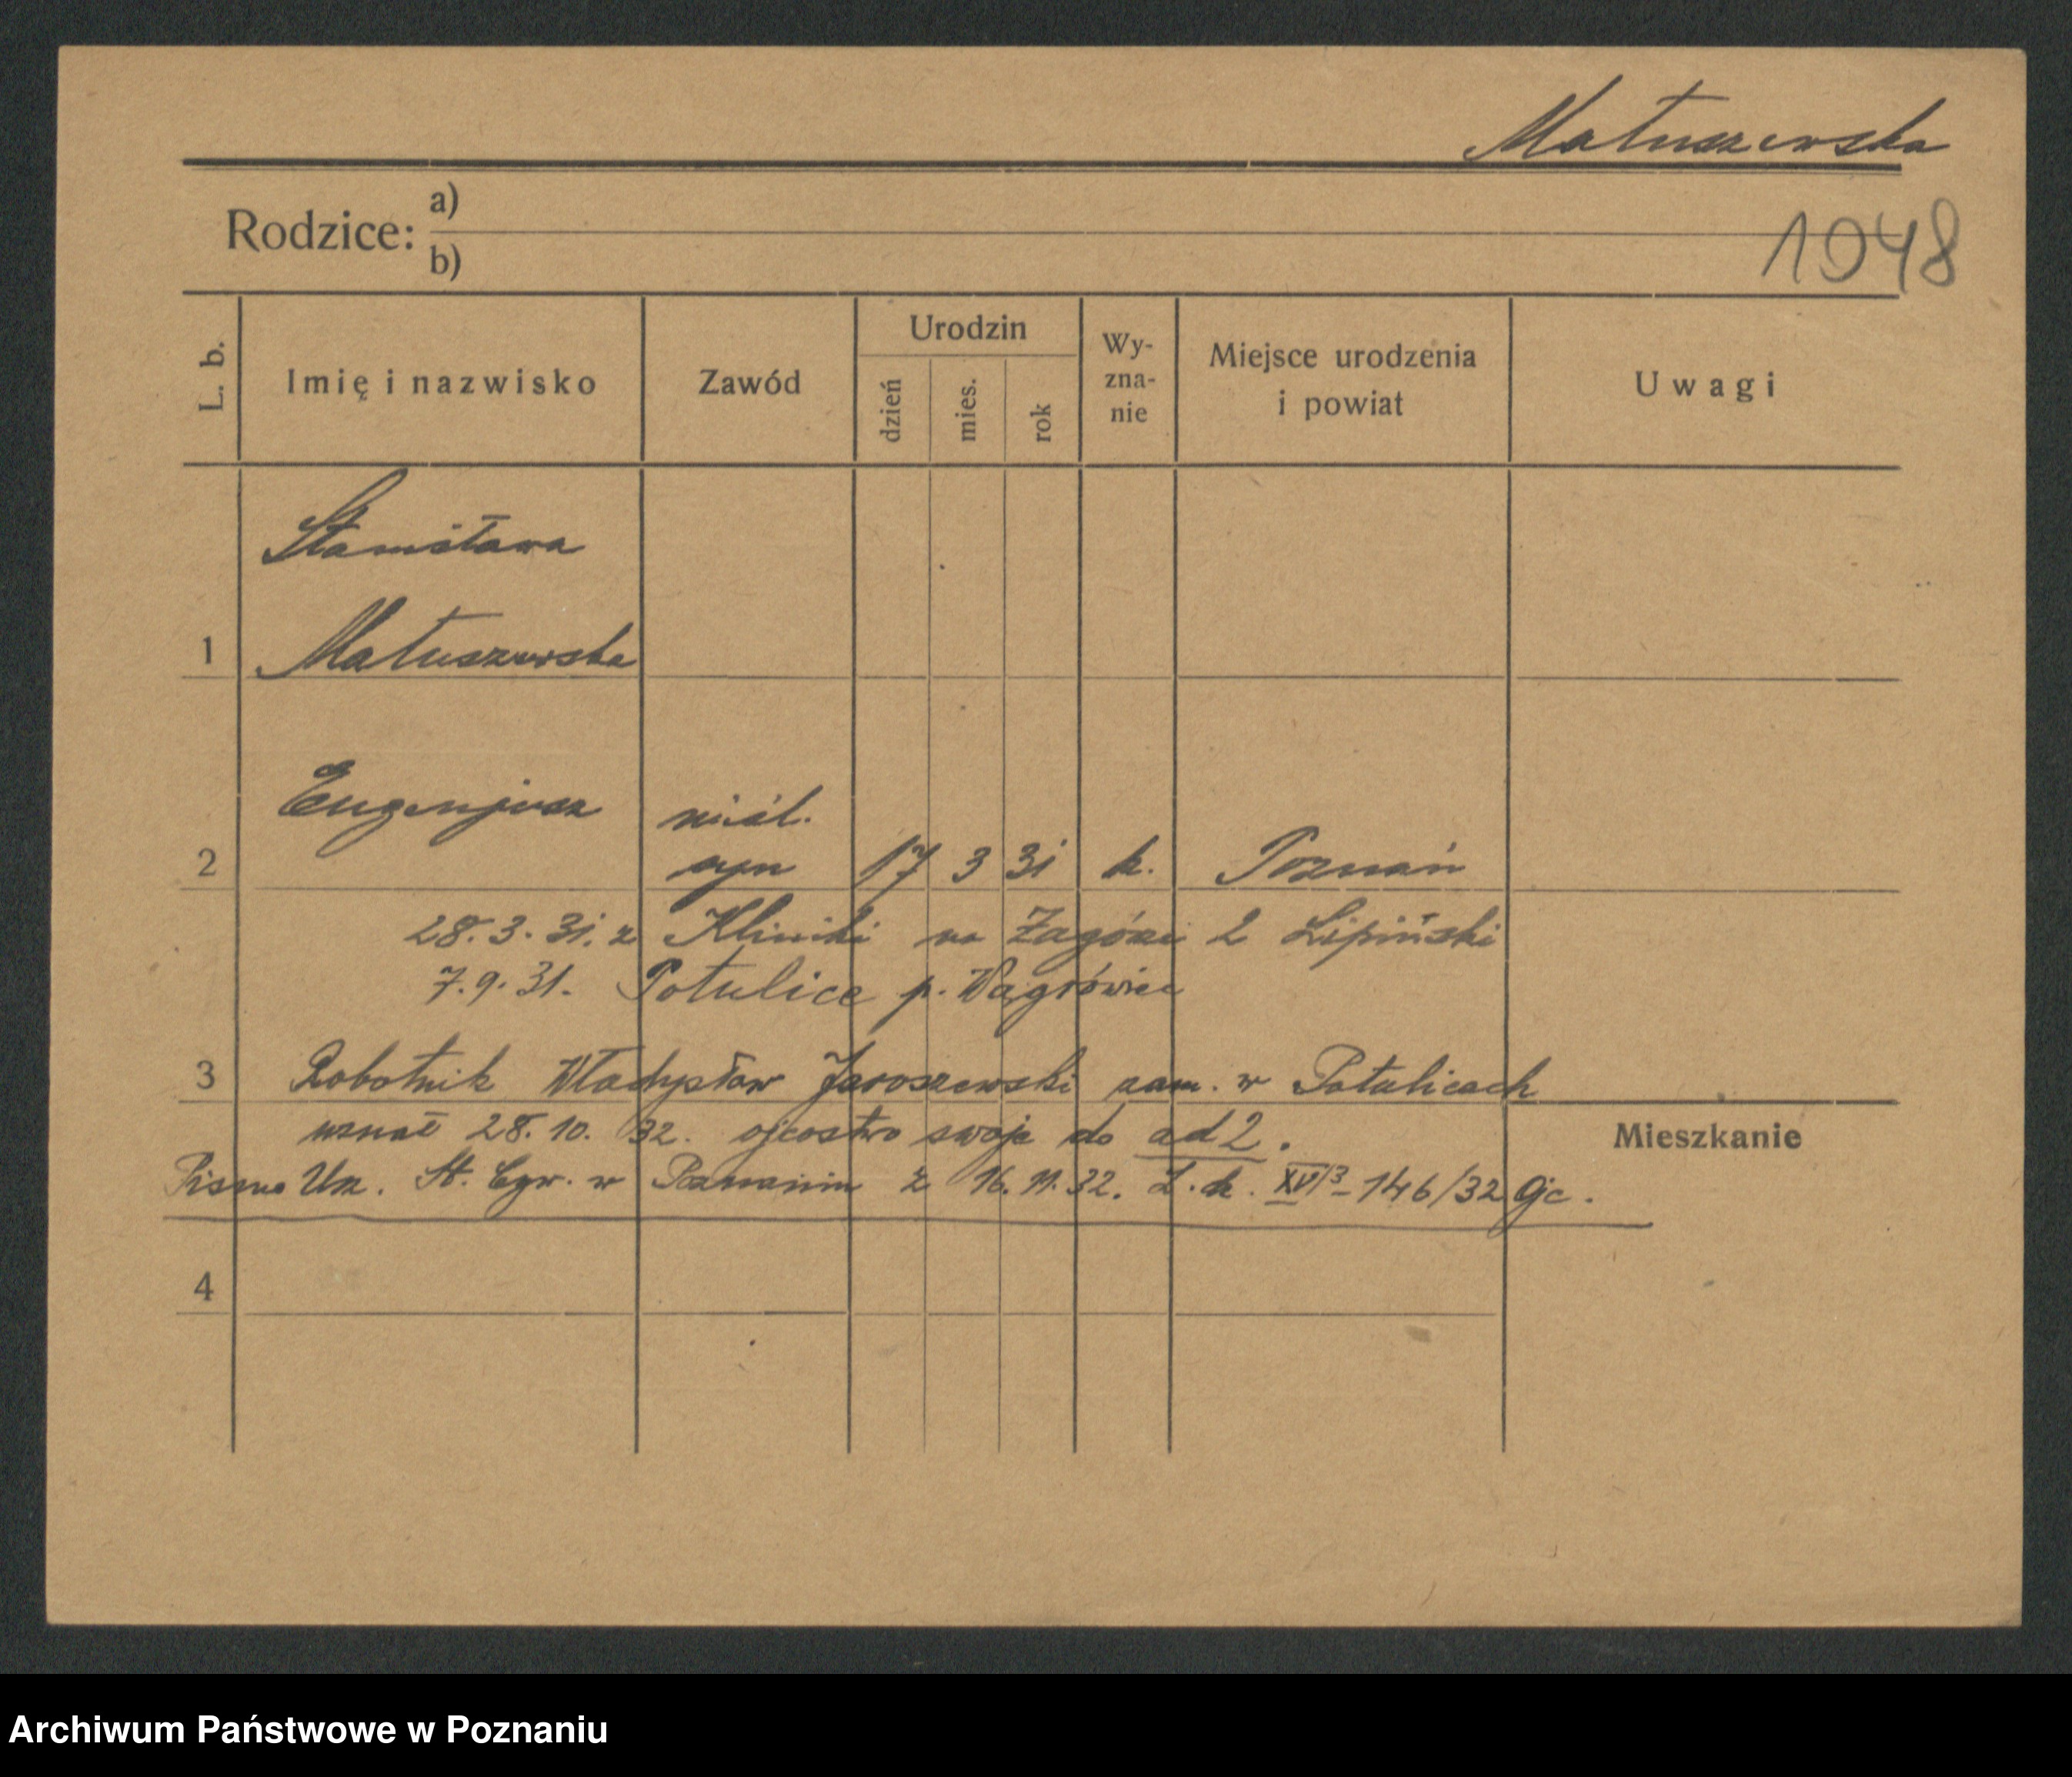 Matuszewska
Rodzice: a)
b)
1948
L. b. Imię i nazwisko Zawód Urodzin dzień mies. rok Wy-zna-nie Miejsce urodzenia i powiat Uwagi
Stanisława
1 Matuszewska
Eugenjusz nieśl.
2 syn 17 3 31 k. Poznań
28. 3. 31. z Kliniki na Zagórze 2 Lipiński
7. 9. 31. Potulice p. Wągrówiec
3 Robotnik Władysław Jaroszewski zam. w Potulicach
uznał 28. 10. 32. ojcostwo swoje do ad 2.
Mieszkanie
Pismo Urz. St. Cyw. w Poznaniu z 16. 11. 32. L. dz. XVI/3-146/32
4
Archiwum Państwowe w Poznaniu